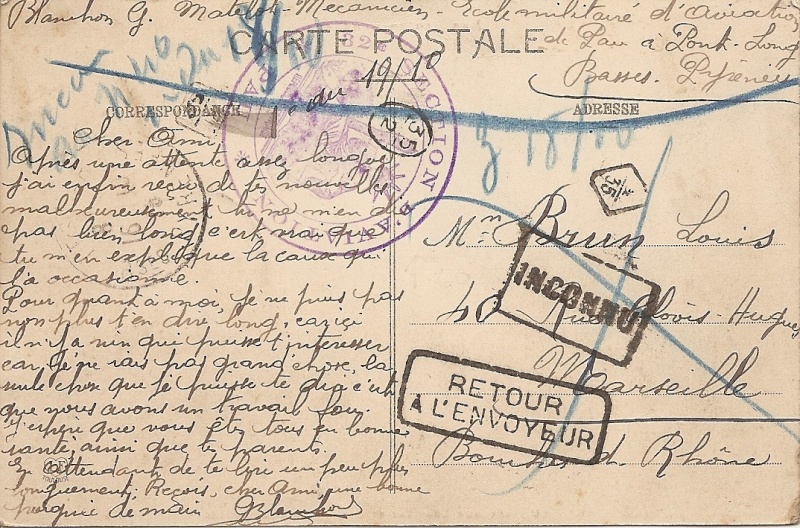 Blanchon G. Matelot-Mecanicien - Ecole militaire d'Aviation
de Pau à Pont-Long
Basses-Pyrénées
CARTE POSTALE
19/10
CORRESPONDANCE
ADRESSE
2e SECTION
AVIATION
35
2
15/10
35
Cher Ami
Après une attente assez longue
j'ai enfin reçu de tes nouvelles
malheureusement tu ne m'en dis
pas bien long c'est vrai que
tu m'en explique la cause qui
l'a occasionné.
Pour quant à moi, je ne puis pas
non plus t'en dire long, car ici
il n'y a rien qui puisse t'intéresser
car je ne vais pas grand chose, la
seule chose que je puisse te dire c'est
que nous avons un travail fou.
J'espère que vous êtes tous en bonne
santé ainsi que tes parents.
En attendant de te lire un peu plus
longuement. Reçois, cher Ami, une bonne
poignée de main GBlanchon
Mr Brun Louis
40 Rue Clovis-Hugues
Marseille
Bouches d. Rhône
INCONNU
RETOUR
A L'ENVOYEUR